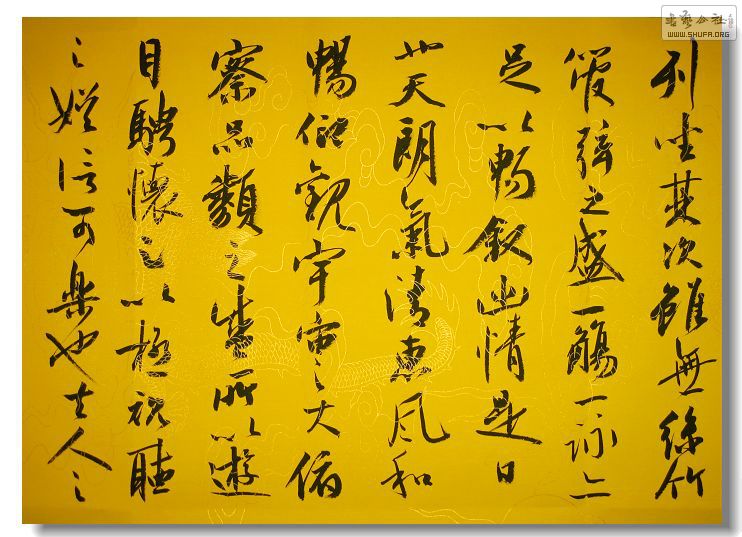 列坐其次雖無絲竹
管弦之盛一觴一詠亦
足以暢敘幽情是日
也天朗氣清惠風和
暢仰觀宇宙之大俯
察品類之盛所以遊
目騁懷足以極視聽
之娛信可樂也夫人之
书艺公社
WWW.SHUFA.ORG